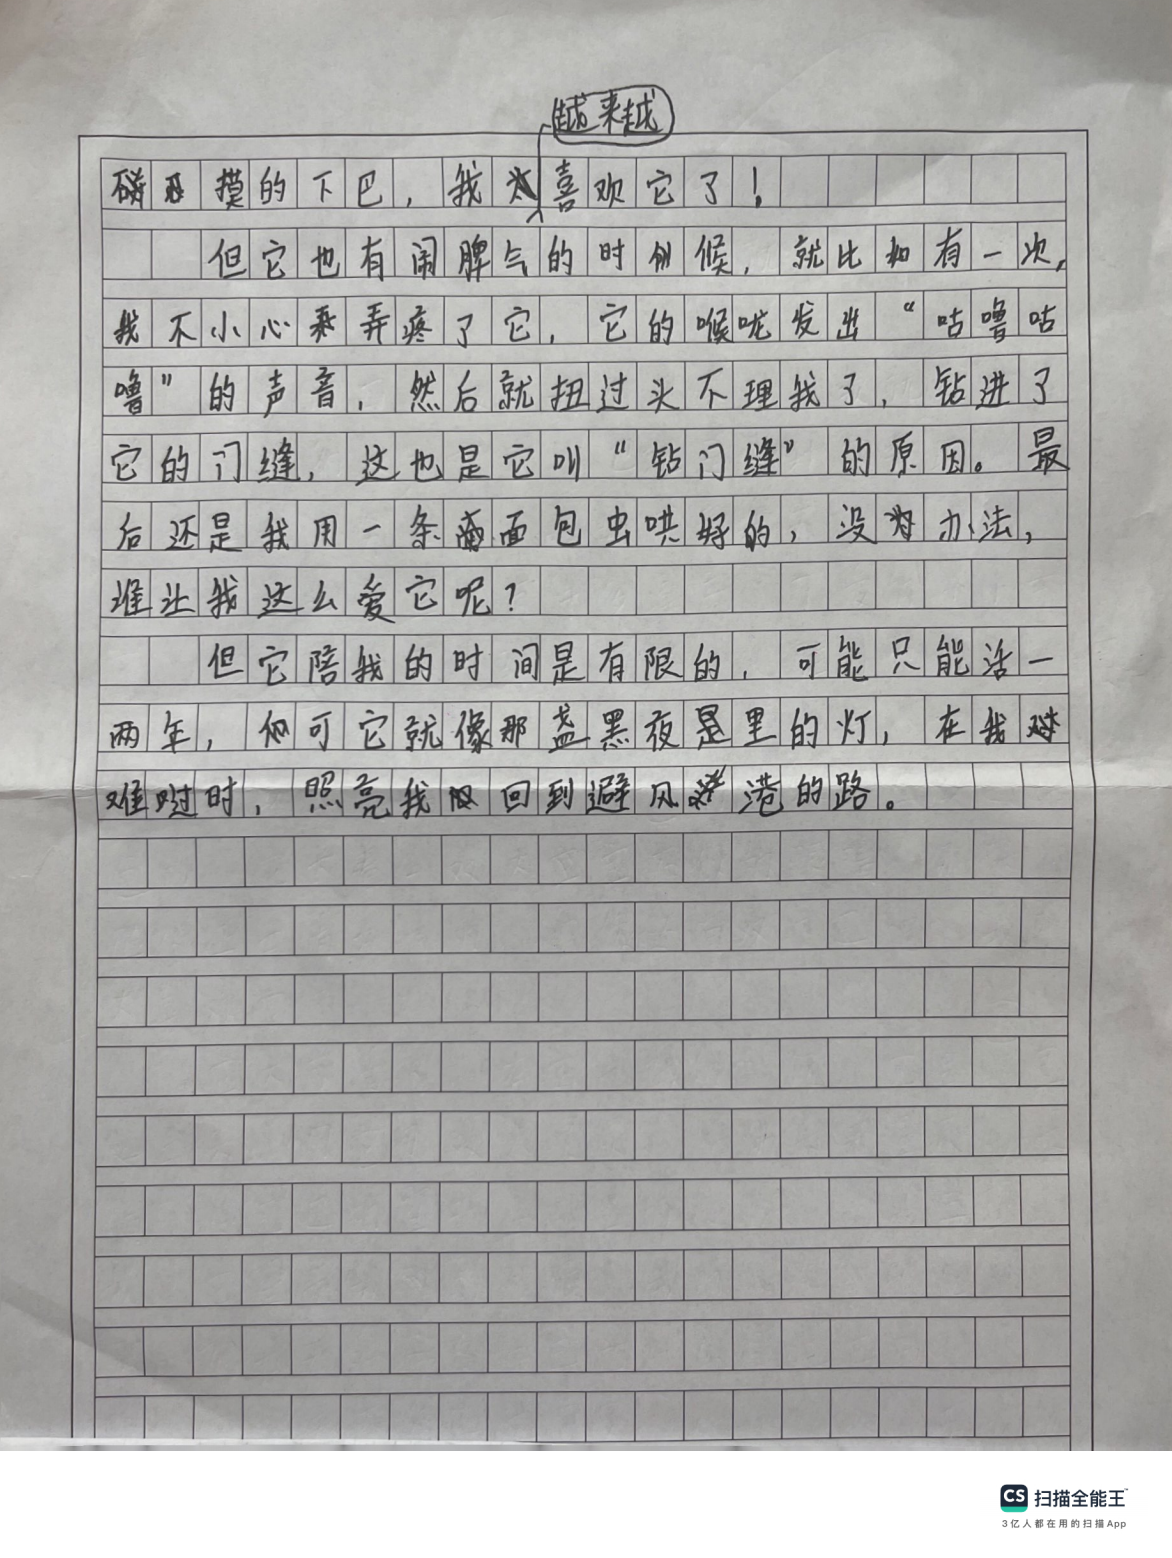 越来越
摸的下巴，我喜欢它了！
但它也有闹脾气的时候，就比如有一次，
我不小心弄疼了它，它的喉咙发出“咕噜咕
噜”的声音，然后就扭过头不理我了，钻进了
它的门缝，这也是它叫“钻门缝”的原因。最
后还是我用一条面包虫哄好的，没办法，
谁让我这么爱它呢？
但它陪我的时间是有限的，可能只能活一
两年，可它就像那盏黑夜里的灯，在我
难过时，照亮我回到避风港的路。
CS 扫描全能王
3亿人都在用的扫描App